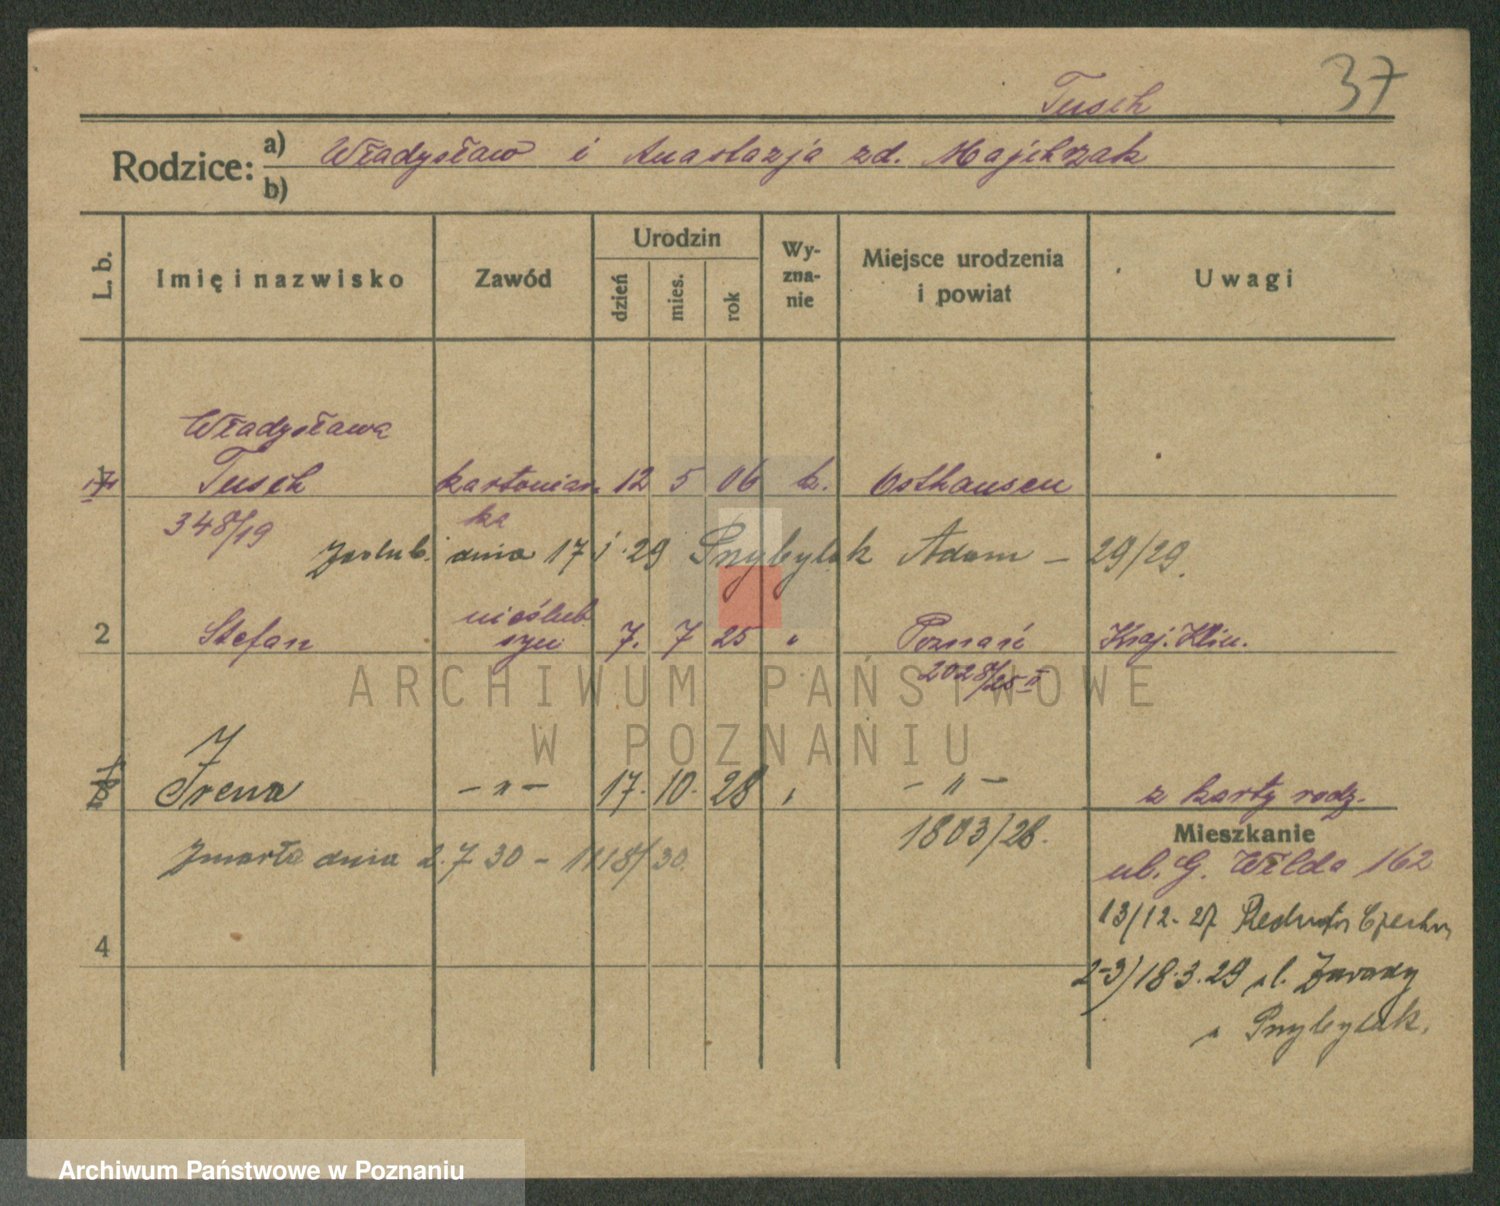 37
Tusch
Rodzice: a) Władysław i Anastazja zd. Majchrzak
b)
L. b.
Imię i nazwisko
Zawód
Urodzin
dzień
mies.
rok
Wy-
zna-
nie
Miejsce urodzenia
i powiat
Uwagi
Władysława
1 Tusch kartoniar- 12 5 06 k. Osthausen
348/19 ka
Zaślub. dnia 17 1. 29 Przybylak Adam – 29/29.
nieślub.
2 Stefan syn 7. 7 25 " Poznań Kraj. Klin.
2028/25 II
3 Irena – " – 17. 10. 28 " – " – z karty rodz.
1803/28.
Zmarła dnia 2. 7 30 – 1118/30.
Mieszkanie
ul. G. Wilda 162
13/12. 27
4
2-3) 18.3.29 ul. Zawady
Przybylak.
ARCHIWUM PAŃSTWOWE
W POZNANIU
Archiwum Państwowe w Poznaniu